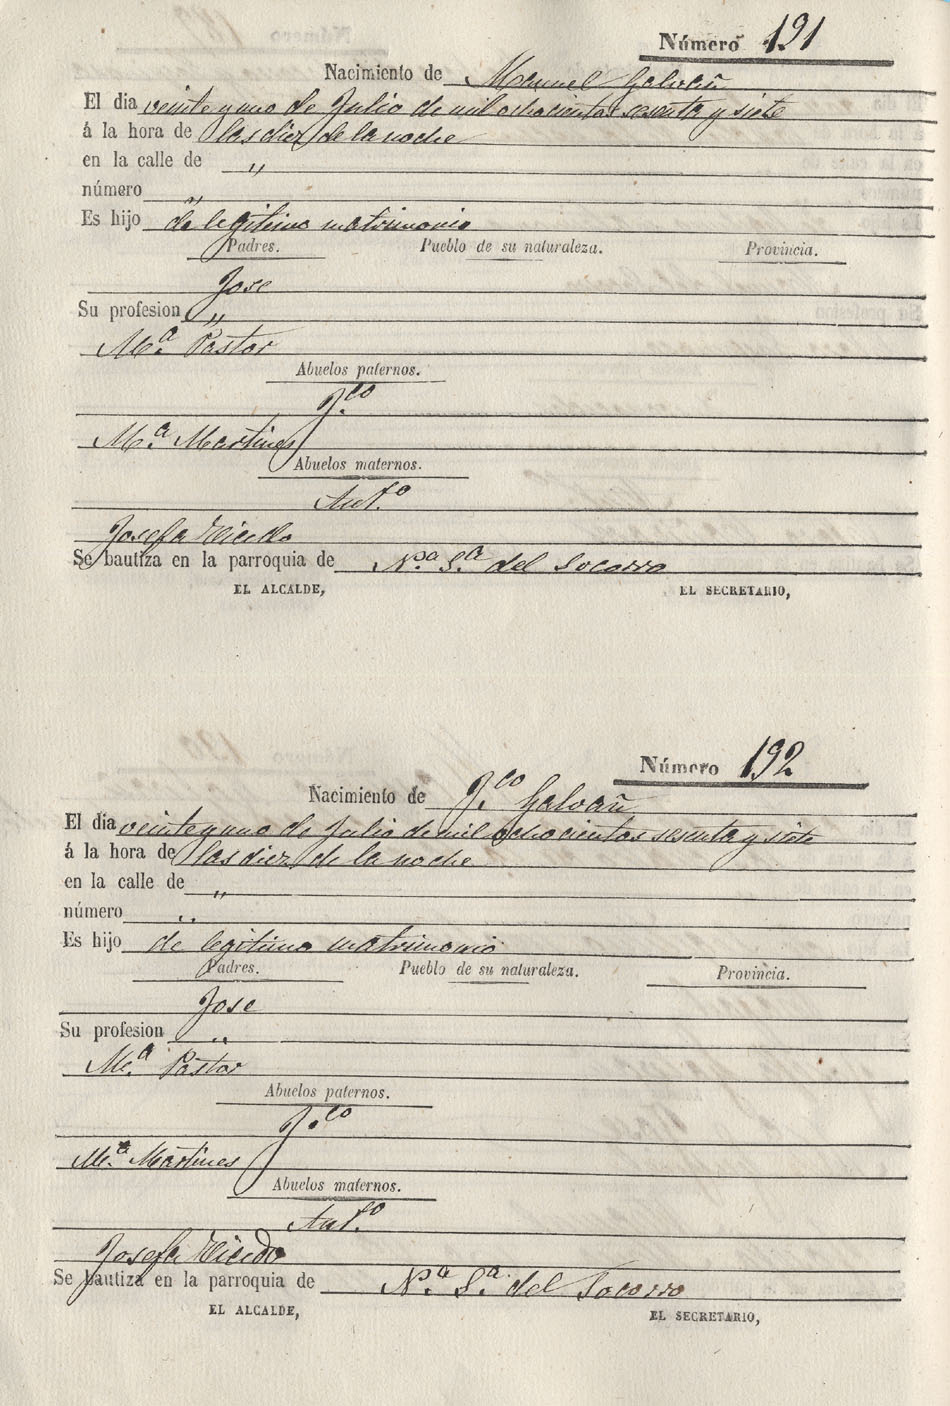 Número 191
Nacimiento de Manuel Galvañ
El dia veinte y uno de Julio de mil ochocientos sesenta y siete
á la hora de las diez de la noche
en la calle de "
número "
Es hijo de legitimo matrimonio
Padres. Pueblo de su naturaleza. Provincia.
Jose
Su profesion "
Mª. Pastor
Abuelos paternos.
F.co
Mª. Martines
Abuelos maternos.
Ant.o
Josefa
Se bautiza en la parroquia de Nª. Sª. del Socorro
EL ALCALDE, EL SECRETARIO,
Número 192
Nacimiento de F.co Galvañ
El dia veinte y uno de Julio de mil ochocientos sesenta y siete
á la hora de las diez de la noche
en la calle de "
número "
Es hijo de legitimo matrimonio
Padres. Pueblo de su naturaleza. Provincia.
Jose
Su profesion "
Mª. Pastor
Abuelos paternos.
F.co
Mª. Martines
Abuelos maternos.
Ant.o
Josefa
Se bautiza en la parroquia de Nª. Sª. del Socorro
EL ALCALDE, EL SECRETARIO,